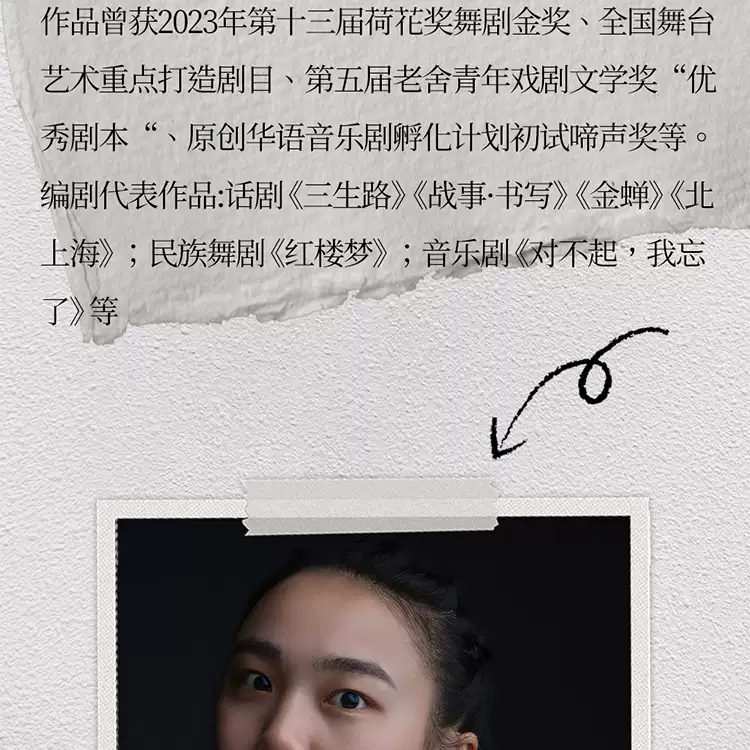 作品曾获2023年第十三届荷花奖舞剧金奖、全国舞台
艺术重点打造剧目、第五届老舍青年戏剧文学奖“优
秀剧本“、原创华语音乐剧孵化计划初试啼声奖等。
编剧代表作品:话剧《三生路》《战事·书写》《金蝉》《北
上海》；民族舞剧《红楼梦》；音乐剧《对不起，我忘
了》等